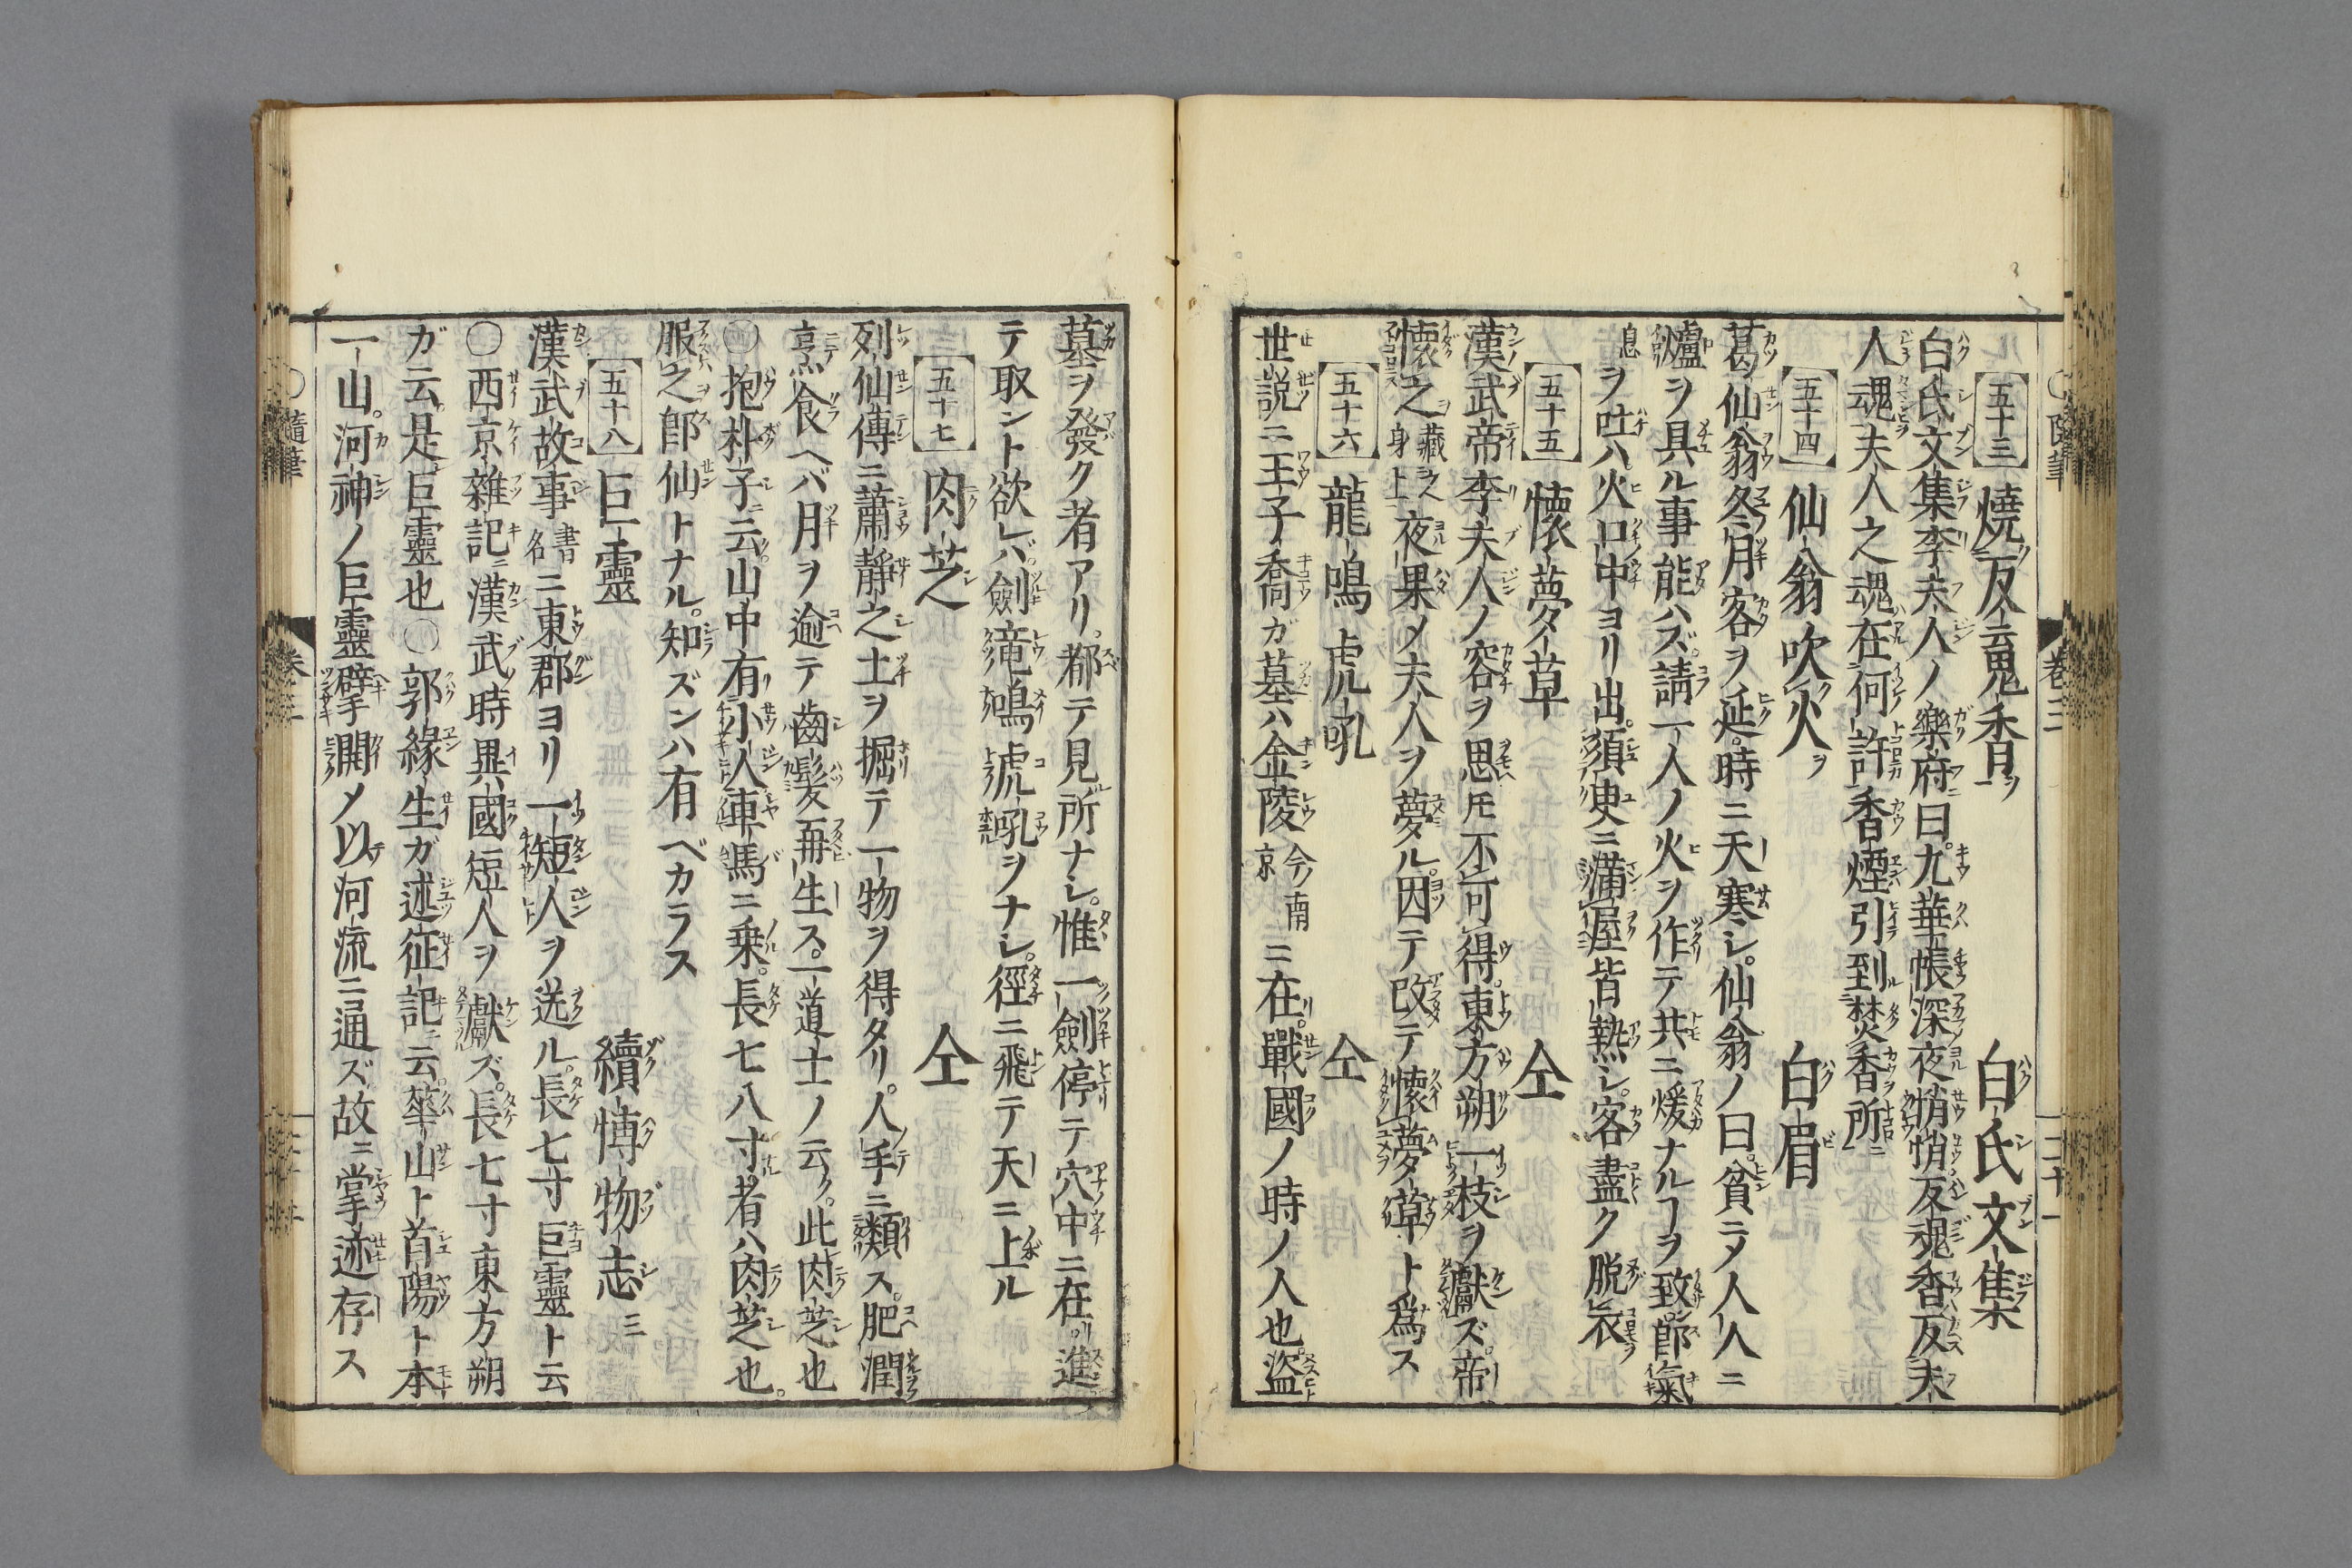 ○随筆 巻三 三十一
五十三 燒反魂香ヲ 白氏文集
白氏文集李夫人ノ樂府ニ曰。九華帳深夜悄悄反魂香反夫
人魂夫人之魂在何許香煙引到焚香所ニ
五十四 仙翁吹火ヲ 白眉
葛仙翁冬月客ヲ延。時ニ天寒シ。仙翁ノ曰。貧ニメ人人ニ
爐ヲ具ル事能ハズ。請一人ノ火ヲ作テ共ニ煖ナルヿヲ致ン。即氣
息ヲ吐ハ火口中ヨリ出。須臾ニ滿屋皆熱シ。客盡ク脱衣ヲ
五十五 懷夢草 仝
漢武帝李夫人ノ容ヲ思ヘ𪜈不可得。東方朔一枝ヲ獻ズ。帝
懷之藏之身上夜果メ夫人ヲ夢ル。因テ改テ懷夢草ト爲ス
五十六 龍鳴虎吼 仝
世説ニ王子喬ガ墓ハ金陵今ノ南京ニ在リ。戰國ノ時ノ人也。盜
墓ヲ發ク者アリ。都テ見ル所ナシ。惟一劔停テ穴中ニ在リ。進
テ取ント欲レバ。劔竜鳴虎吼ヲナシ。徑ニ飛テ天ニ上ル
五十七 肉芝 仝
列仙傳ニ蕭靜之土ヲ掘テ一物ヲ得タリ。人ノ手ニ類ス。肥潤
烹食ヘバ月ヲ逾テ齒髮再生ス。一道士ノ云ク。此肉芝也
○抱朴子ニ云ク。山中有小人車馬ニ乗ル。長七八寸ナル者ハ肉芝也。
服之即仙トナル。知ズンハ有ベカラス
五十八 巨靈 續博物志三
漢武故事書名ニ東郡ヨリ一短人ヲ送ル。長七寸巨靈ト云
○西京雜記ニ漢武ノ時異國短人ヲ獻ズ。長七寸東方朔
ガ云。是巨靈也○郭緣生ガ述征記ニ云。華山ト首陽ト本
一山。河神ノ巨靈擘開メ以テ河流ニ通ズ故ニ掌迹存ス
○隨筆 巻三